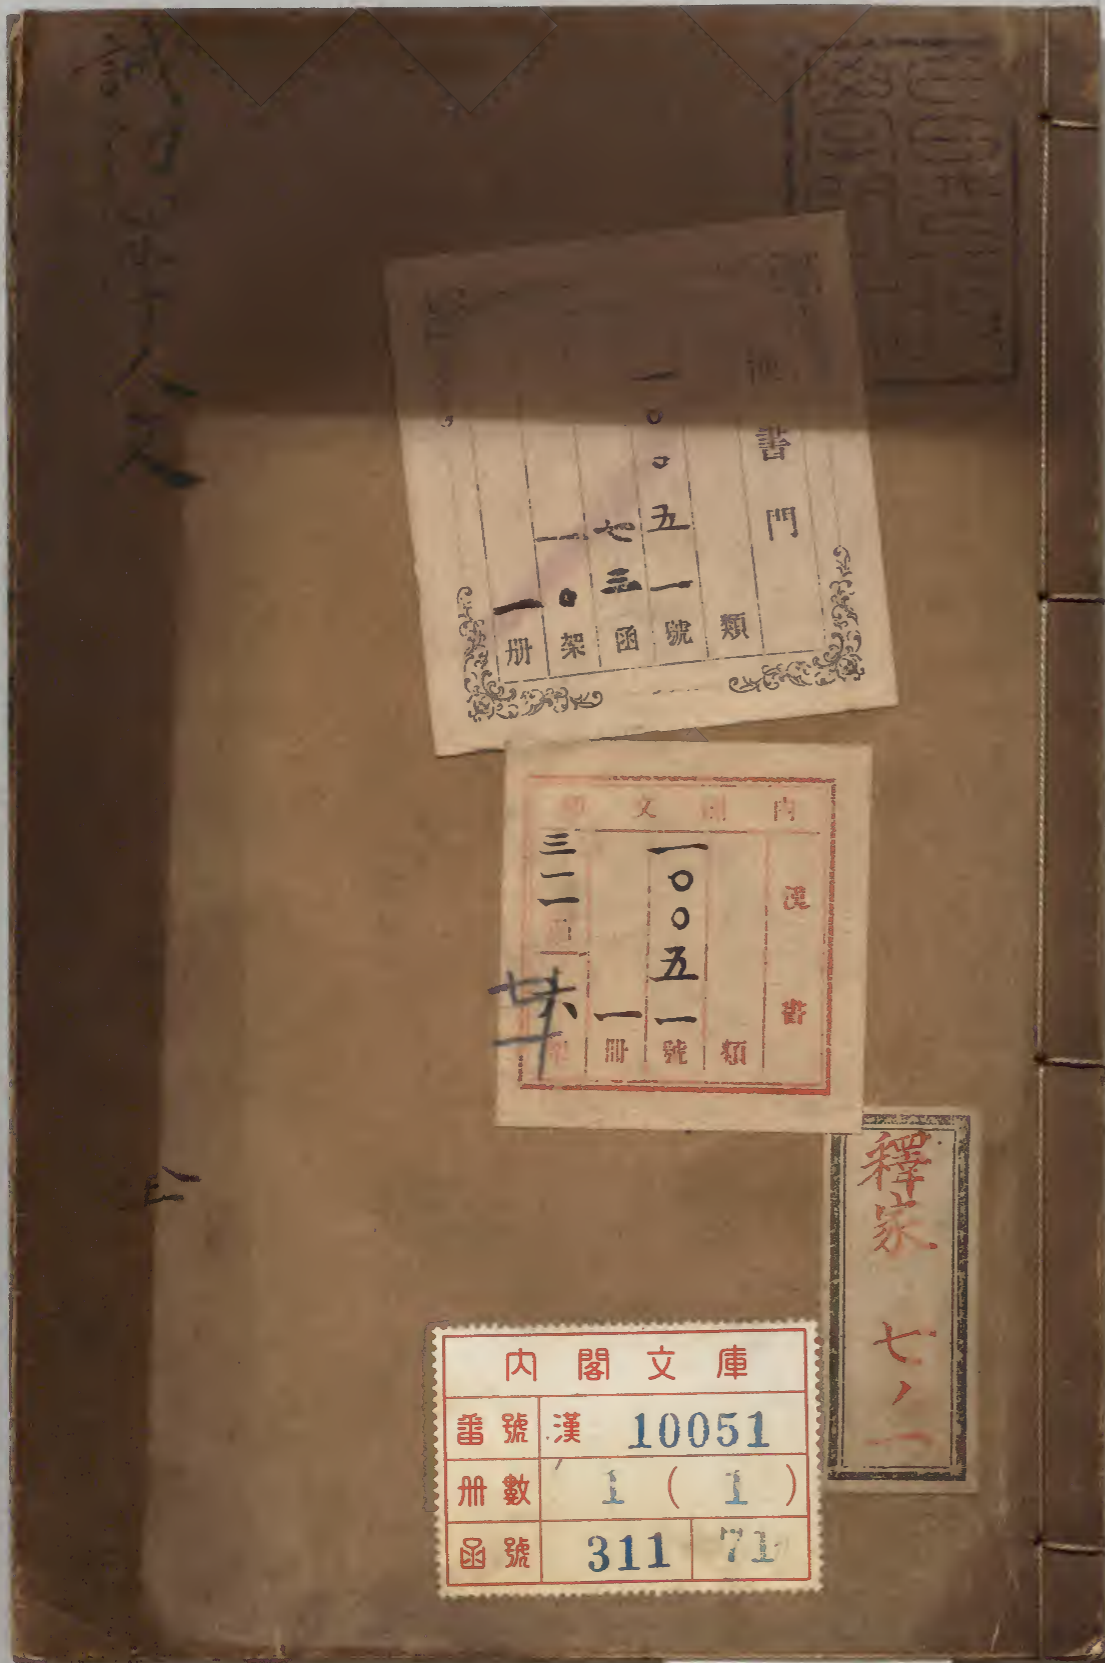 誡
人文
全
書門
類
一〇〇五一號
七三函
一〇架
一册
内閣文庫
漢書
類
一〇〇五一號
一冊
三一一
六
七十一
釋家 七ノ一
内閣文庫
番號 漢 10051
册數 1 ( 1 )
函號 311 71